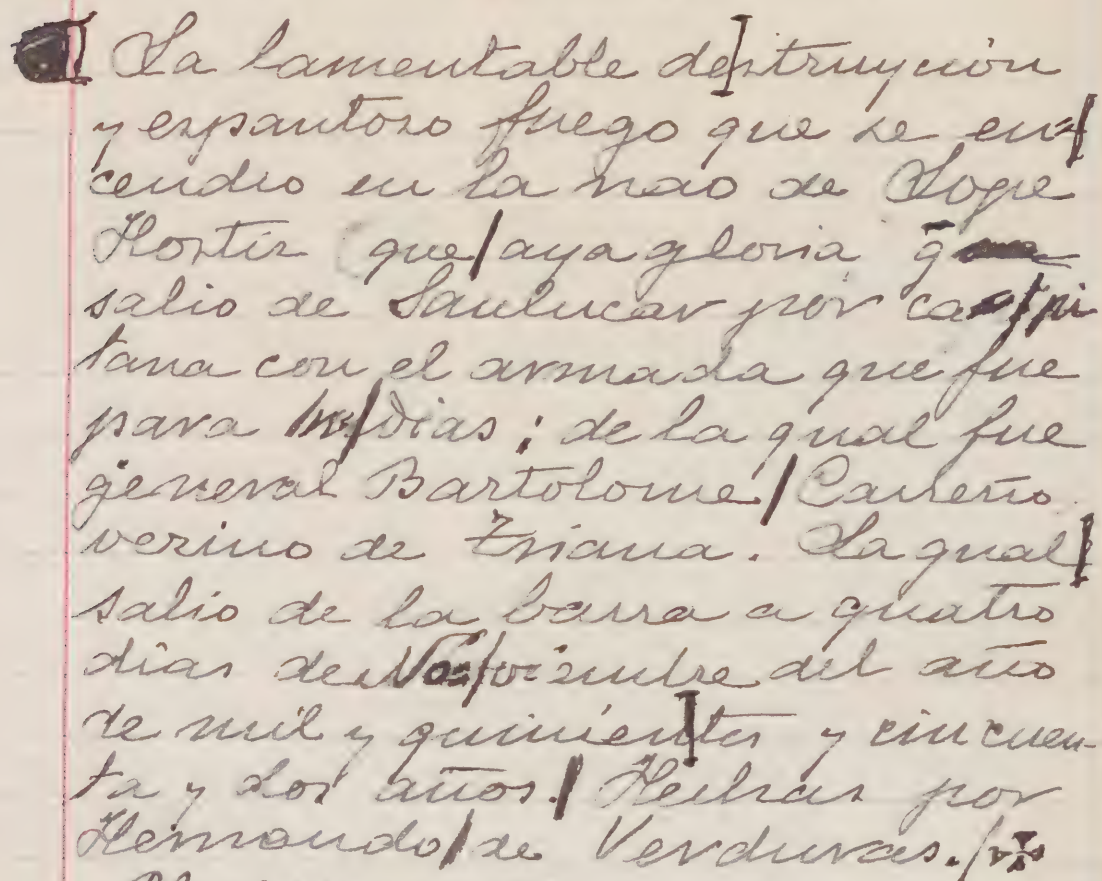 La lamentable des]truycion
y espantoso fuego que se en=/
cendio en la nao de Lope
Hortiz (que/aya gloria q̃
salio de Sanlucar por ca=/pi
tana con el armada que fue
para In=/dias; de la qual fue
general Bartolome/Carreño
vezino de Triana. La qual/
salio de la barra a quatro
dias de No=/viembre del año
de mil y quinien/tos y cincuen-
ta y dos años./ Hechas por
Hernando/de Verduras./✠